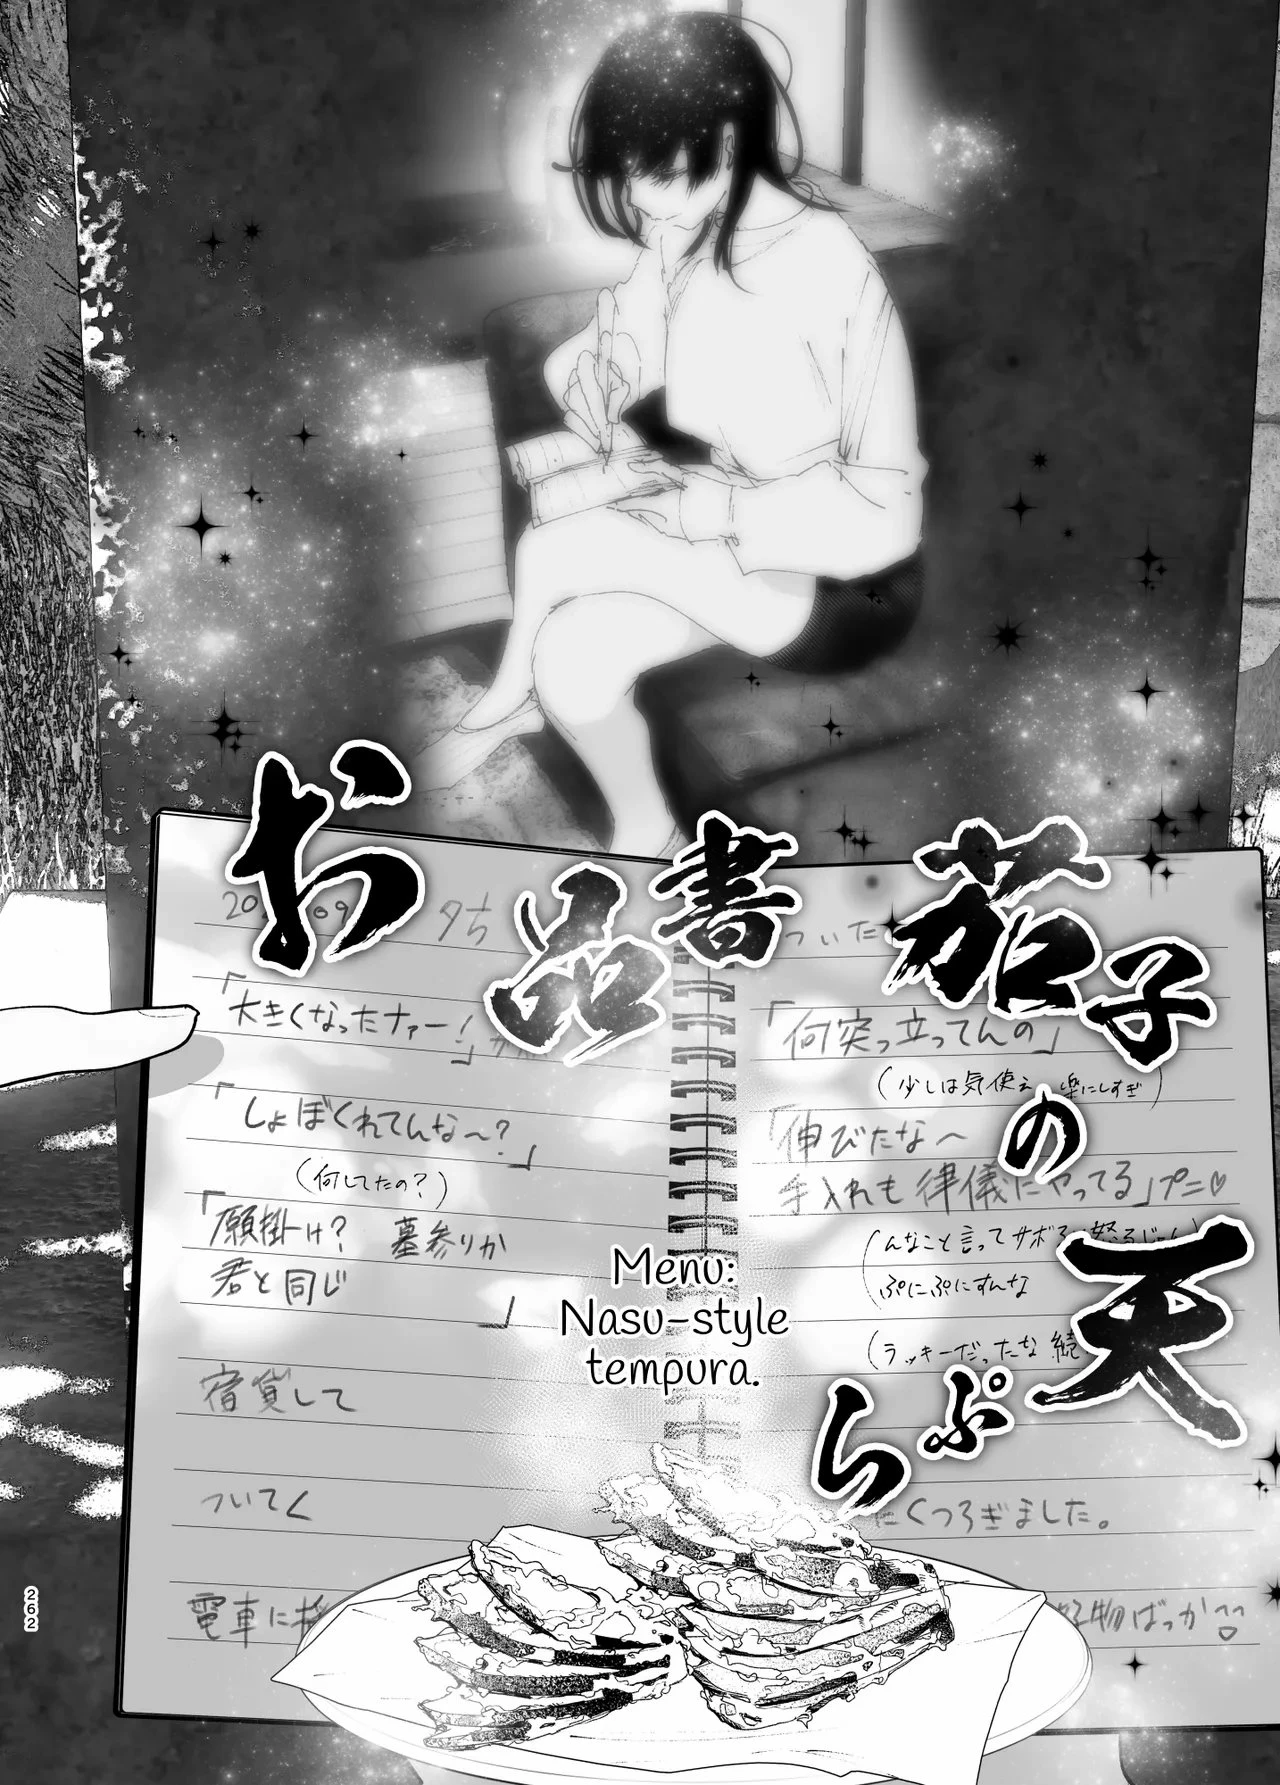 お品書
茄子の
天ぷら
タち
「大きくなったナァー！」
「しょぼくれてんな〜？」
（何してたの？）
「願掛け？ 墓参りか
君と同じ」
宿貸して
ついてく
電車に
ついた
「何突っ立ってんの」
（少しは気使え 楽にしすぎ）
「伸びたな〜
手入れも律儀にやってる」プニ♡
んなこと言ってサボ
ぷにぷにすんな
（ラッキーだったな 続
にくつろぎました。
物ばっか
Menu:
Nasu-style
tempura.
262